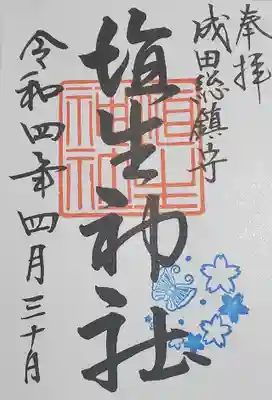 奉拝
成田総鎮守
埴生神社
埴生神社
令和四年四月三十日